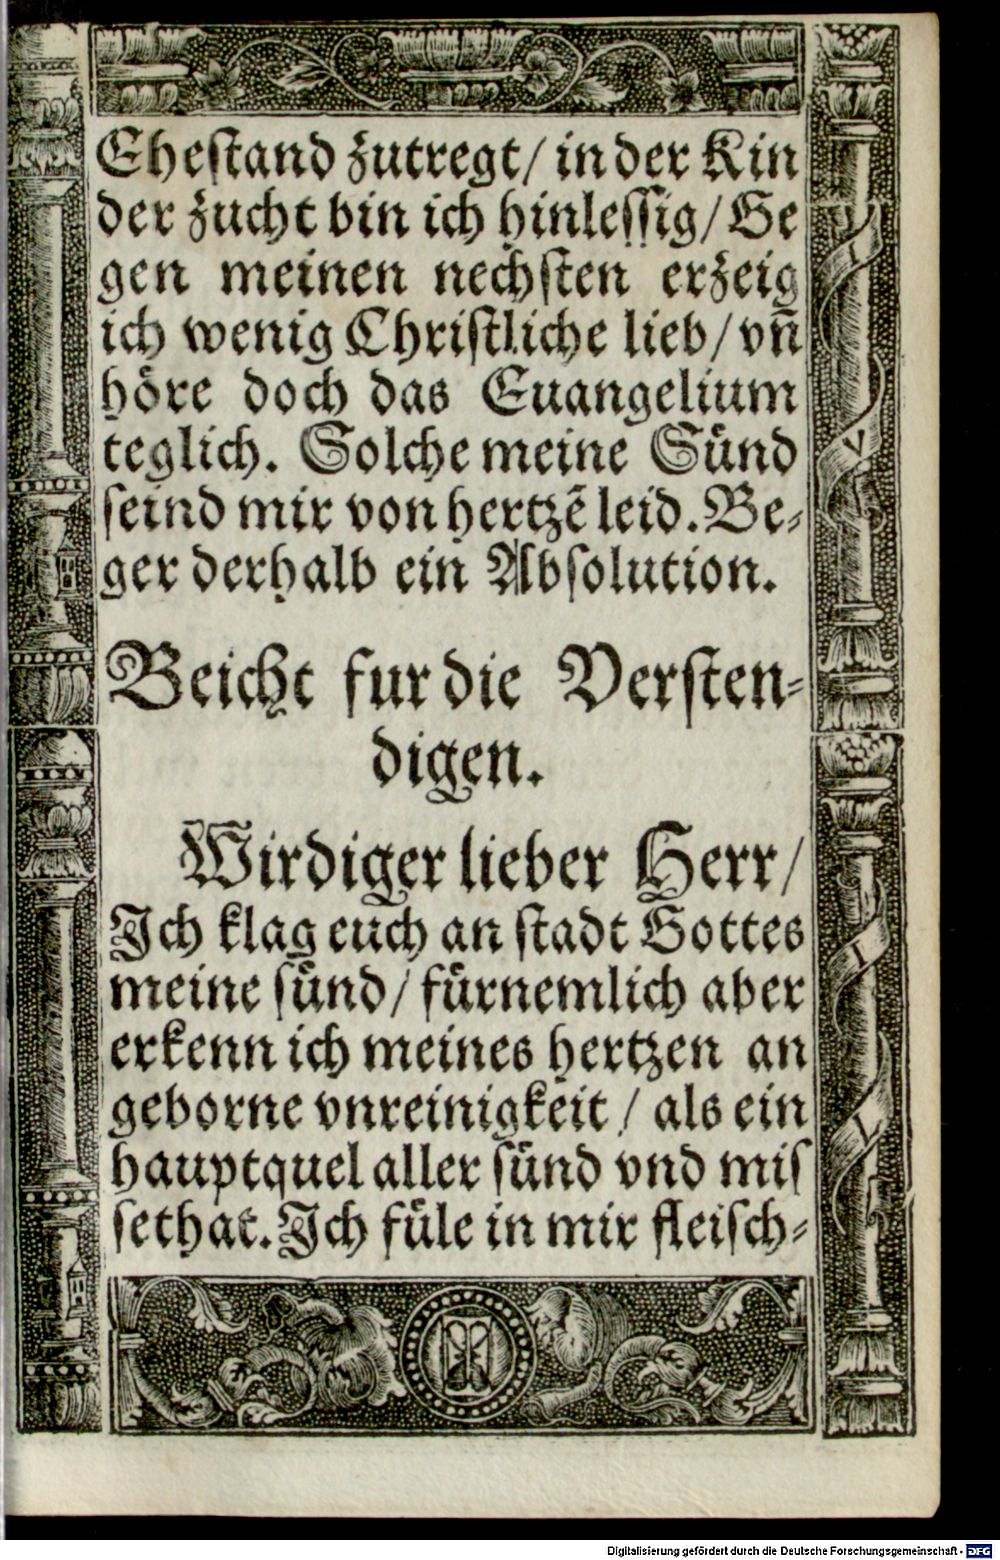 Ehestand zutregt/ in der Kin
der zucht bin ich hinlessig/ Ge
gen meinen nechsten erzeig
ich wenig Christliche lieb/ vn̄
höre doch das Euangelium
teglich. Solche meine Sünd
seind mir von hertzē leid. Be-
ger derhalb ein Absolution.
Beicht fur die Versten-
digen.
Wirdiger lieber Herr/
Ich klag euch an stadt Gottes
meine sünd/ fürnemlich aber
erkenn ich meines hertzen an
geborne vnreinigkeit/ als ein
hauptquel aller sünd vnd mis
sethat. Ich füle in mir fleisch-
Digitalisierung gefördert durch die Deutsche Forschungsgemeinschaft - DFG